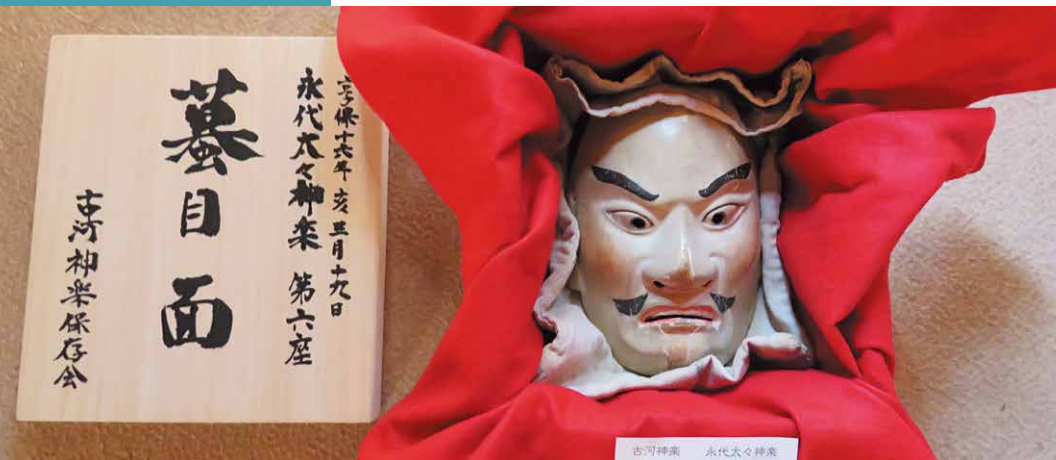 享保十六年 亥 三月十九日
永代太々神楽 第六座
蟇目面
古河神楽保存会
古河神楽 永代太々神楽